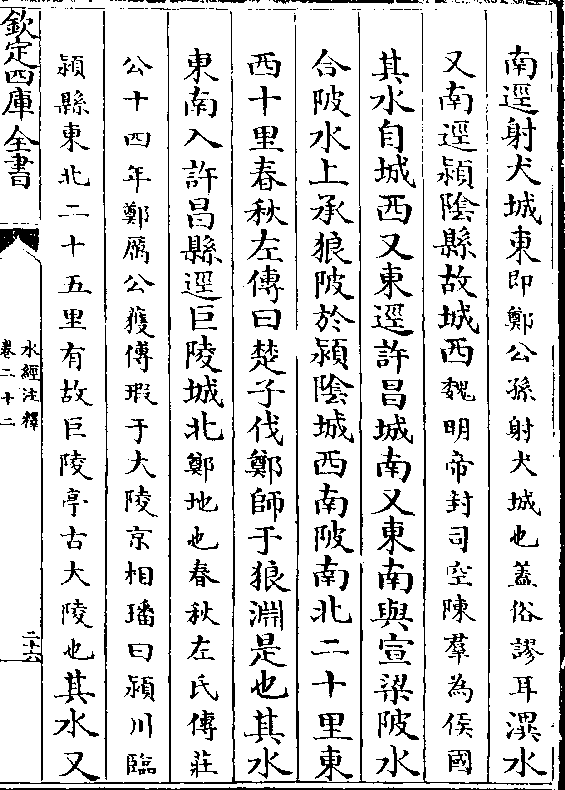 南逕射犬城東即鄭公孫射犬城也蓋俗謬耳潩水
又南逕潁隂縣故城西魏明帝封司空陳羣為侯國
其水自城西又東逕許昌城南又東南與宣梁陂水
合陂水上承狼陂於潁隂城西南陂南北二十里東
西十里春秋左傳曰楚子伐鄭師于狼淵是也其水
東南入許昌縣逕巨陵城北鄭地也春秋左氏傳莊
公十四年鄭厲公獲傅瑕于大陵京相璠曰潁川臨
潁縣東北二十五里有故巨陵亭古大陵也其水又
欽定四庫全書
水經注釋
卷二十二
二十六